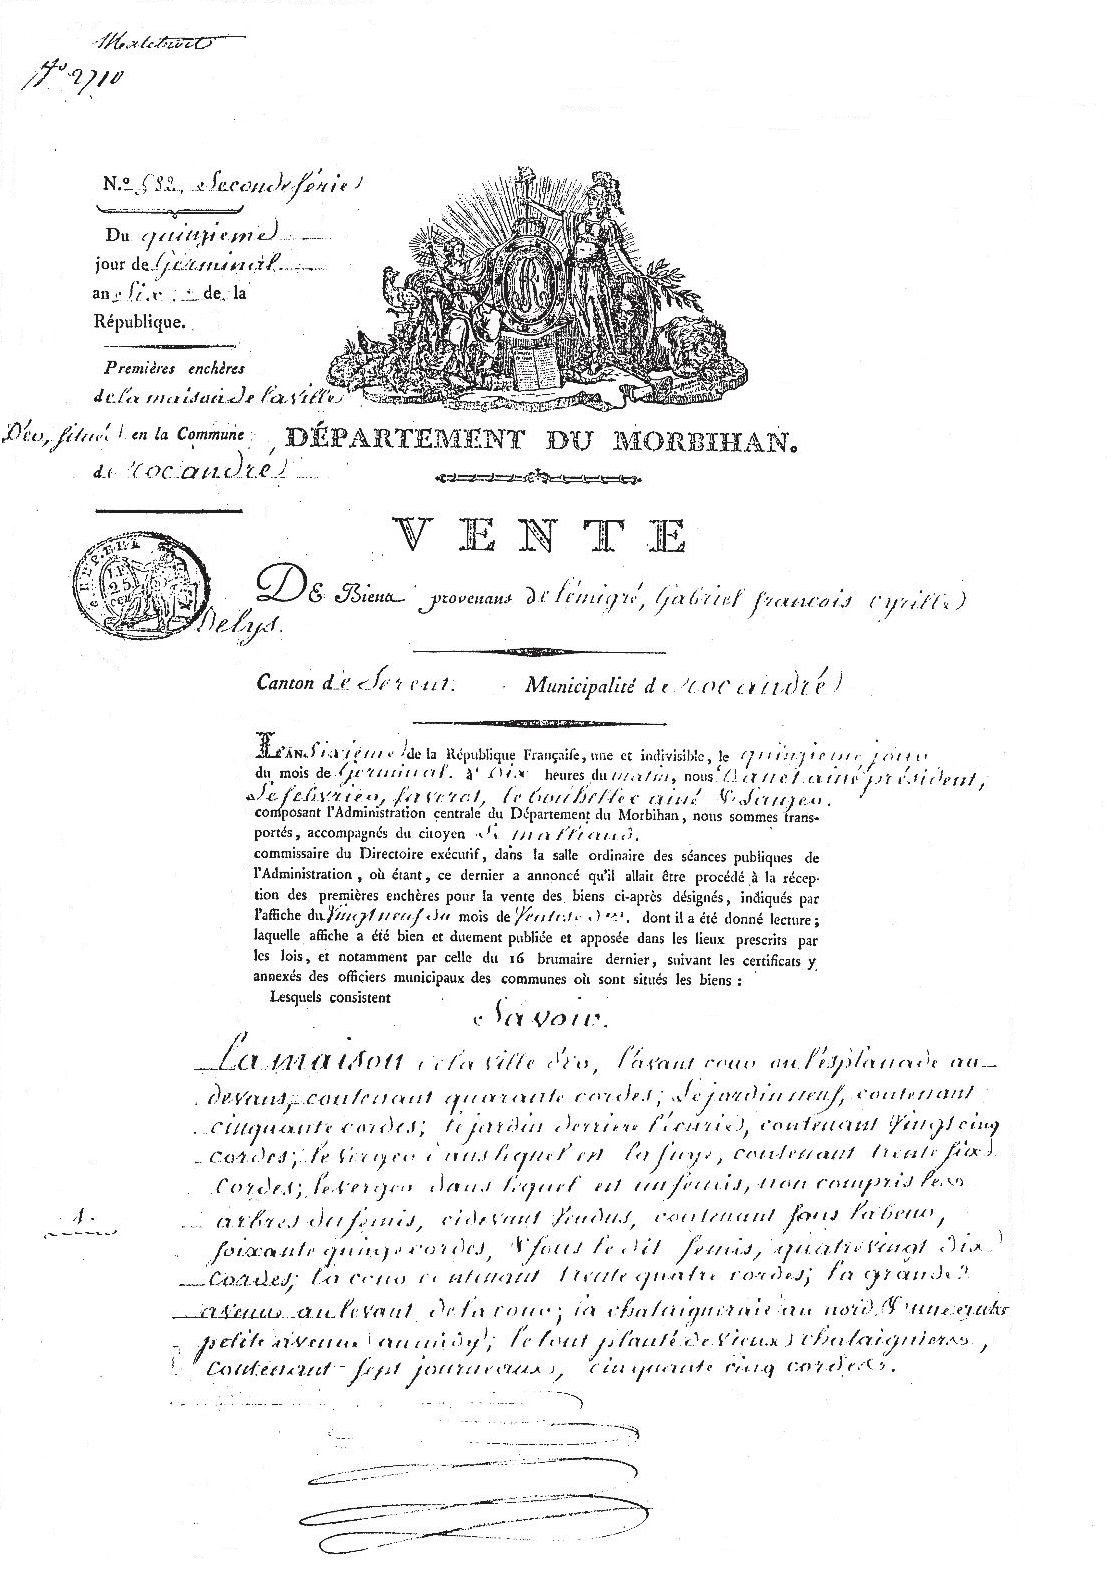 Malestroit
N.º 2710
N.º 582, Seconde série
Du quinzieme
jour de Germinal
an Six de la
République.
Premières enchères
de la maison de la ville
Déo, située en la Commune
de rocandré
DÉPARTEMENT DU MORBIHAN.
VENTE
REP. FRA.
DE Biens provenans de l'émigré, Gabriel francois cyrille
Delys.
Canton de Serent. Municipalité de rocandré
L'AN Sixieme de la République Françaife, une et indivisible, le quinzieme jour
du mois de Germinal. à Dix heures du matin, nous Danet ainé président,
Lefebvrier, faverot, le bouhellec ainé & Lauzer.
composant l'Administration centrale du Département du Morbihan, nous sommes trans-
portés, accompagnés du citoyen
commissaire du Directoire exécutif, dans la salle ordinaire des séances publiques de
l'Administration, où étant, ce dernier a annoncé qu'il allait être procédé à la récep-
tion des premières enchères pour la vente des biens ci-après désignés, indiqués par
l'affiche du Vingt neuf du mois de Ventose dont il a été donné lecture;
laquelle affiche a été bien et duement publiée et apposée dans les lieux prescrits par
les lois, et notamment par celle du 16 brumaire dernier, suivant les certificats y
annexés des officiers municipaux des communes où sont situés les biens :
Lesquels consistent
Savoir.
La maison de la ville déo, l'avant cour ou l'esplanade au-
devant, contenant quarante cordes; Le jardin neuf, contenant
cinquante cordes; le jardin derriere l'écurie, contenant Vingt cinq
cordes; le verger dans lequel est la fuye, contenant trente six
Cordes; le verger dans lequel est un semis, non compris les
arbres du semis, cidevant Vendus, contenant sous labour,
1.
soixante quinze cordes, & sous le dit semis, quatre vingt dix
Cordes; la cour contenant trente quatre cordes; la grande
avenue au levant de la cour; la chataigneraie au nord & une autre
petite avenue au midy; le tout planté de vieux chataigniers,
Contenant sept journeaux, cinquante cinq cordes.